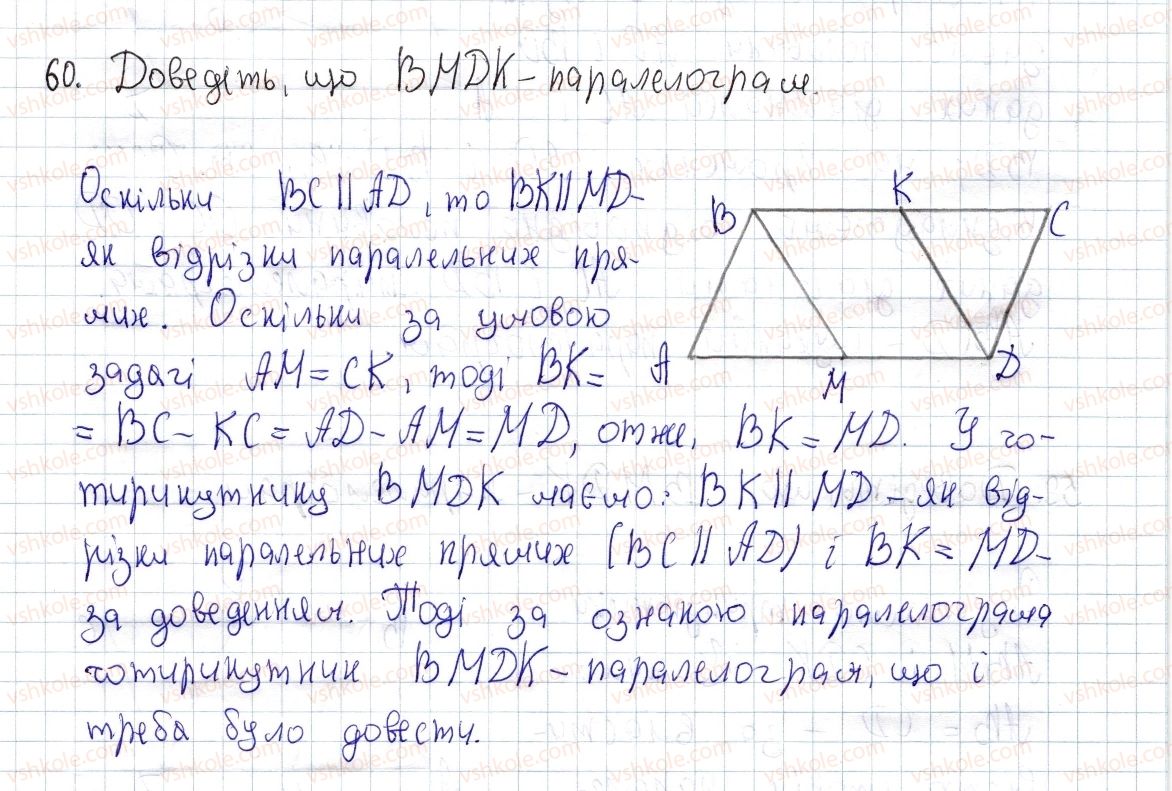 60. Доведіть, що BMDK – паралелограм.
Оскільки BC || AD, то BK || MD –
як відрізки паралельних пря-
мих. Оскільки за умовою
задачі AM = CK, тоді BK =
= BC – KC = AD – AM = MD, отже, BK = MD. У чо-
тирикутнику BMDK маємо: BK || MD – як від-
різки паралельних прямих (BC || AD) і BK = MD –
за доведенням. Тоді за ознакою паралелограма
чотирикутник BMDK – паралелограм, що і
треба було довести.
B K C
A M D
vshkole.com